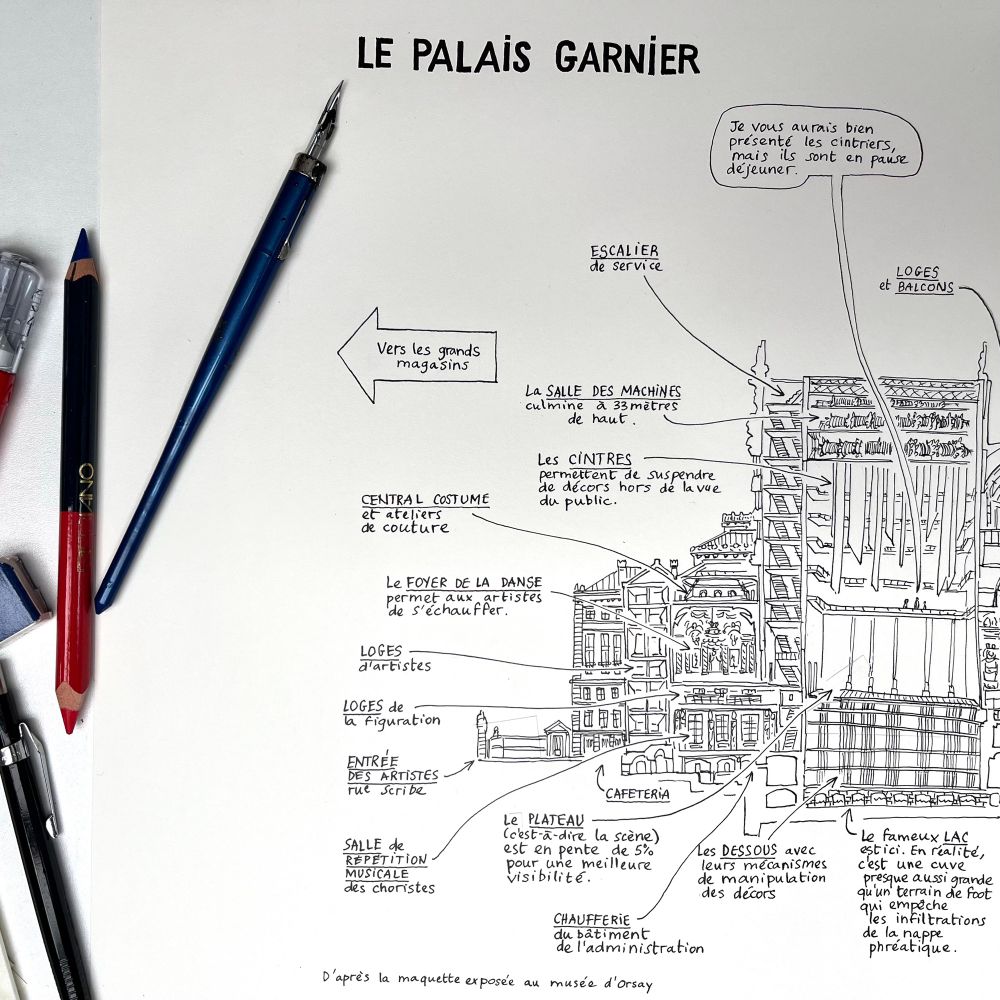 LE PALAIS GARNIER
Je vous aurais bien
présenté les cintriers,
mais ils sont en pause
déjeuner.
ESCALIER
de service
LOGES
et BALCONS
Vers les grands
magasins
La SALLE DES MACHINES
culmine à 33 mètres
de haut.
Les CINTRES
permettent de suspendre
de décors hors de la vue
du public.
CENTRAL COSTUME
et ateliers
de couture
Le FOYER DE LA DANSE
permet aux artistes
de s'échauffer.
LOGES
d'artistes
LOGES de
la figuration
ENTRÉE
DES ARTISTES
rue Scribe
CAFETERIA
SALLE de
RÉPÉTITION
MUSICALE
des choristes
Le PLATEAU
(c'est-à-dire la scène)
est en pente de 5%
pour une meilleure
visibilité.
Les DESSOUS avec
leurs mécanismes
de manipulation
des décors
Le fameux LAC
est ici. En réalité,
c'est une cuve
presque aussi grande
qu'un terrain de foot
qui empêche
les infiltrations
de la nappe
phréatique.
CHAUFFERIE
du bâtiment
de l'administration
D'après la maquette exposée au musée d'Orsay